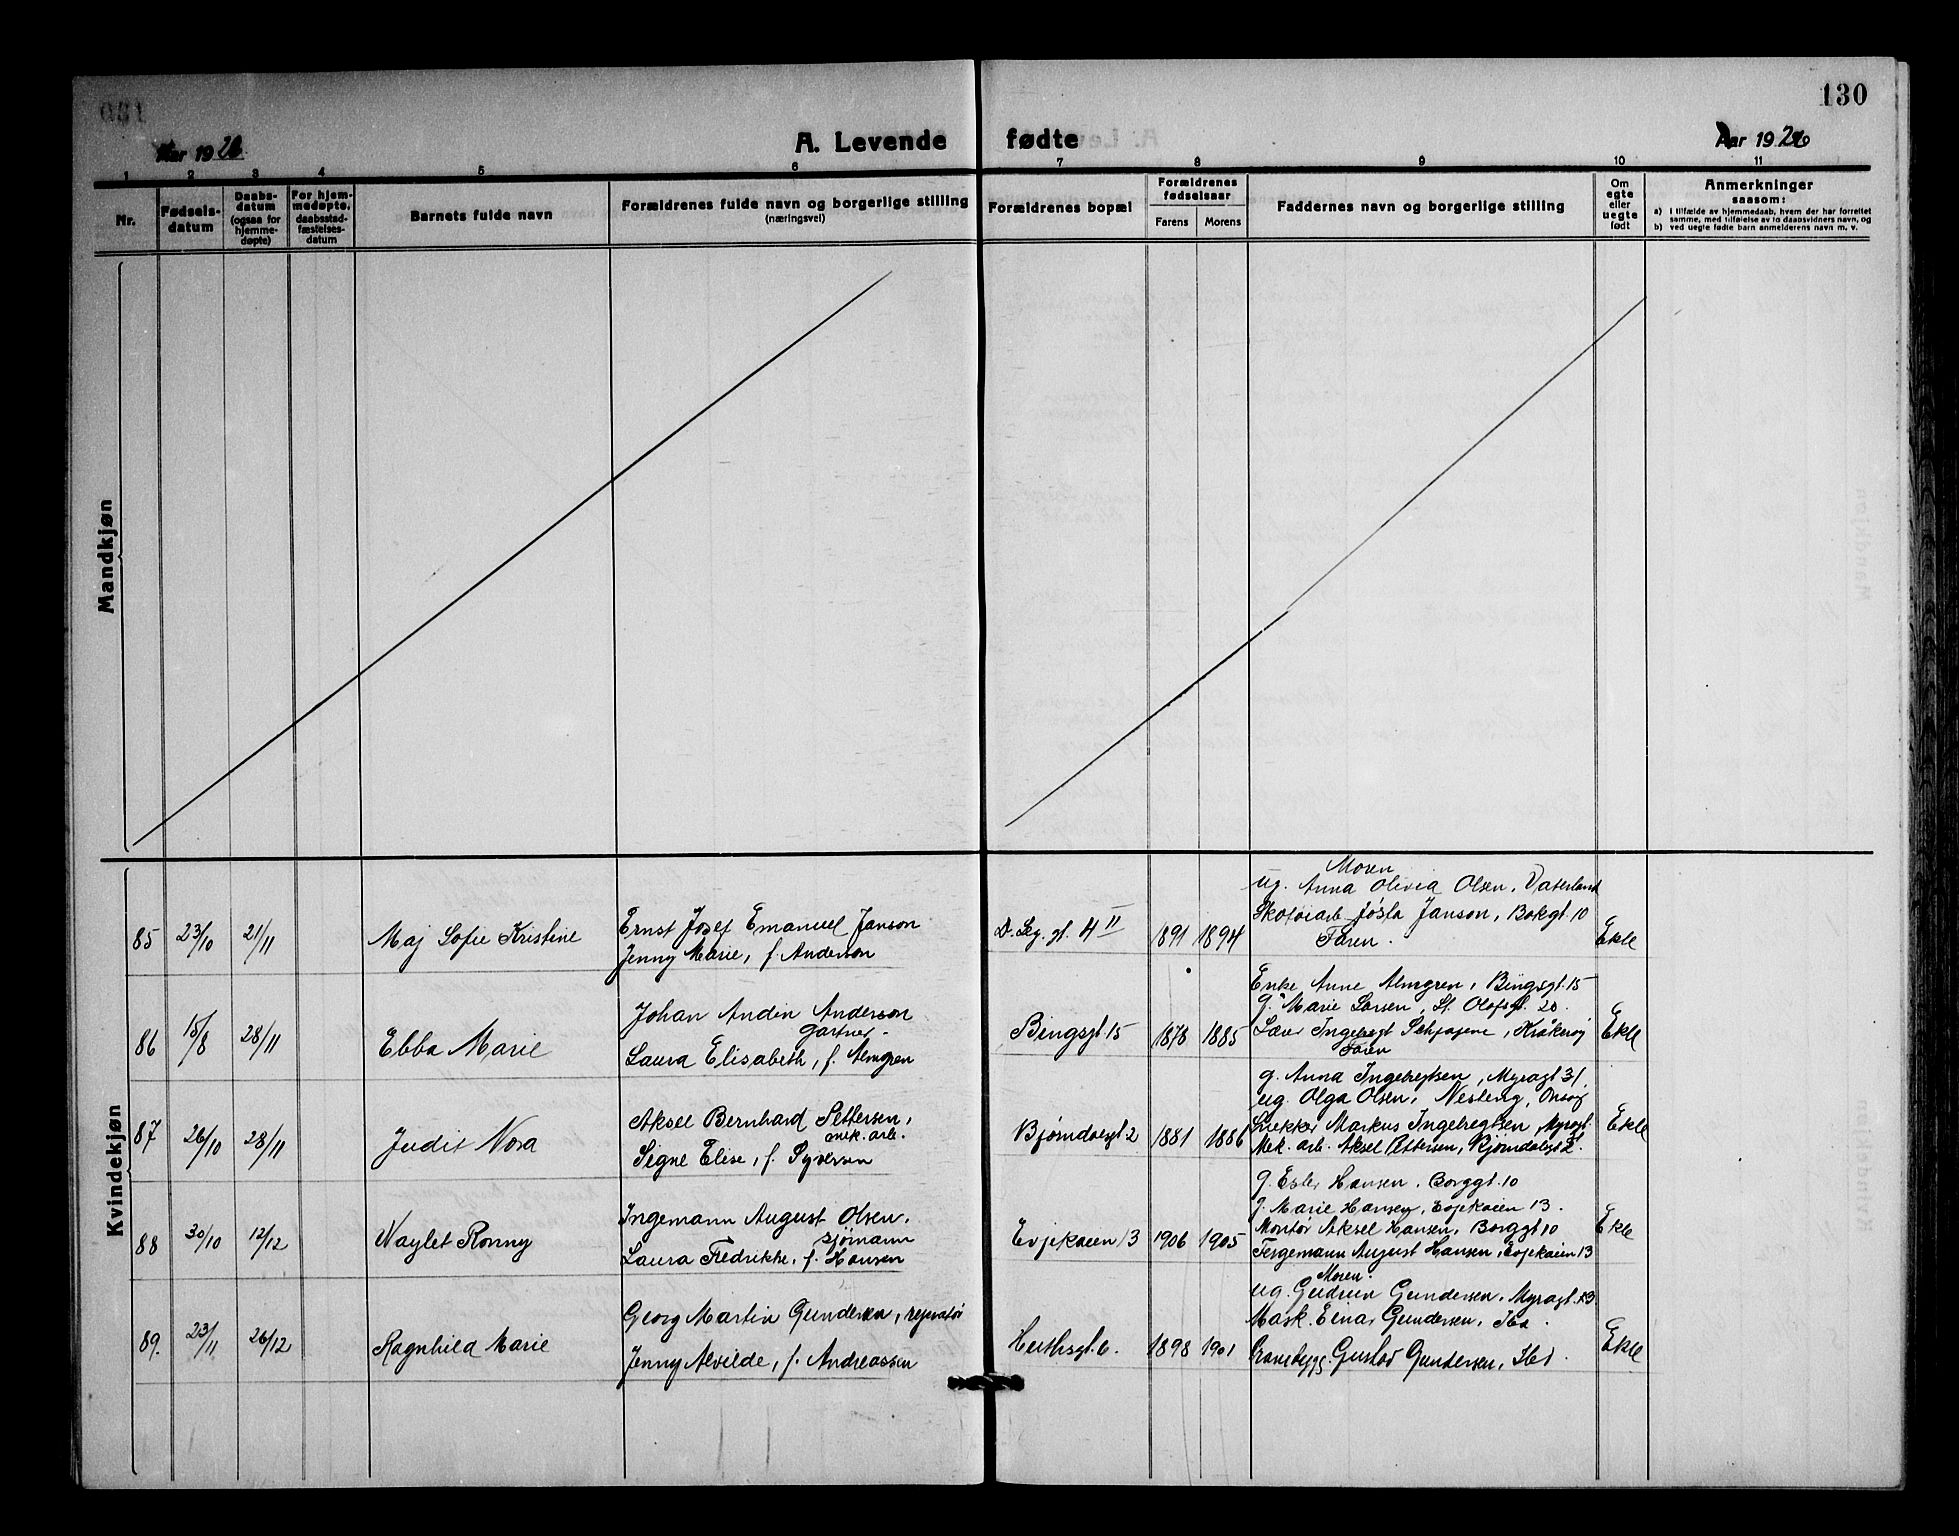 130
A. Levende fødte
Aar 1926
Aar 1926
1 2 3 4 5 6 7 8 9 10 11
Nr.
Fødsels-
datum
Daabs-
datum
(ogsaa for
hjemme-
døpte)
For hjem-
medøpte,
daabsstad-
fæstelses-
datum
Barnets fulde navn
Forældrenes fulde navn og borgerlige stilling
(næringsvei)
Forældrenes bopæl
Forældrenes
fødselsaar
Farens Morens
Faddernes navn og borgerlige stilling
Om
egte
eller
uegte
født
Anmerkninger
saasom:
a) I tilfælde av hjemmedaab, hvem der har forrettet
samme, med tilføielse av to daabsvidners navn, og
b) ved uegte fødte barn anmelderens navn m. v.
Mandkjøn
Kvindekjøn
85 23/10 21/11
Maj Sofie Kristine
Ernst Josef Emanuel Janson
Jenny Marie, f. Anderson
4 II
1891 1894
Moren
ug. Anna Olivia Olsen, Vaterland
Skotøiarb. Jøsta Janson, Bakgt 10
Faren.
Ekte
86 15/8 28/11
Ebba Marie
Johan Andin Anderson
gartner
Laura Elisabeth, f. Almgren
Bingsgt 15
1878 1885
Enke Anne Almgren, Bingsgt. 15
g. Marie Larsen, St. Olafsgt. 20
Ingebregt, Kråkerøy
Faren
Ekte
87 26/10 28/11
Judit Nora
Aksel Bernhard Pettersen,
mek. arb.
Signe Elise, f. Syversen
Bjørndalsgt 2
1881 1886
g. Anna Ingebregtsen, Myragt 31.
ug. Olga Olsen, Onsøy
Markus Ingebregtsen, Myragt.
Mek. arb. Aksel Pettersen, Bjørndalsgt 2.
Ekte
88 30/10 12/12
Waylet Ronny
Ingemann August Olsen,
sjømann
Laura Fredrikke, f. Hansen
Evjekaien 13
1906 1905
g. Ester Hansen, Borggt. 10
g. Marie Hansen, Evjekaien 13.
Montør Aksel Hansen, Borggt 10
August Hansen, Evjekaien 13
Ekte
89. 23/11 26/12
Ragnhild Marie
Georg Martin Gundersen, reparatør
Jenny Alvilde, f. Andreassen
6.
1898 1901
Moren.
ug. Gudrun Gundersen, Myragt. 13
Mask. Einar Gundersen, Ibd.
Gustav Gundersen, Ibd.
Ekte